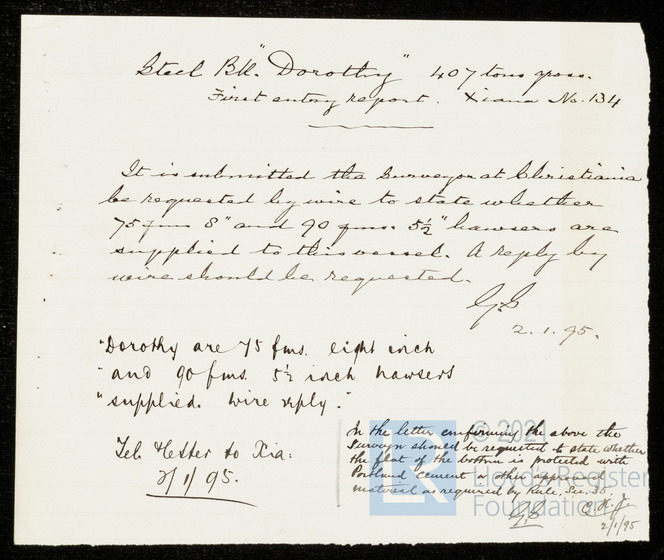 Steel Bk. "Dorothy" 407 tons gross.
First entry report. Xiania No. 134
It is submitted the Surveyor at Christiania
be requested by wire to state whether
75 fms 8" and 90 fms. 5½" hawsers are
supplied to this vessel. A reply by
wire should be requested.
2.1.95.
"Dorothy are 75 fms. eight inch
"and 90 fms. 5½ inch hawsers
"supplied. Wire reply."
Tel. & letter to Xia:
2/1/95.
In the letter confirming the above the
Surveyor should be requested to state whether
the flat of the bottom is protected with
Portland cement or other approved
material as required by Rule, Sec. 35.
2/1/95
© 2021
LR
Lloyd's Register
Foundation